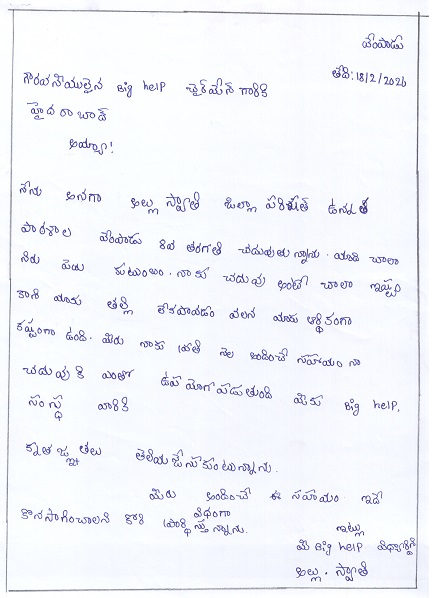 వేంపాడు
తేది: 18/2/2026
గౌరవనీయులైన Big help చైర్మేన్ గారికి
హైదరాబాద్
అయ్యా!
నేను అనగా అల్లు స్వాతి జిల్లా పరిషత్ ఉన్నత
పాఠశాల వేంపాడు 8వ తరగతి చదువుతున్నాను. మాది చాలా
నిరు పేద కుటుంబం. నాకు చదువు అంటే చాలా ఇష్టం
కానీ మాకు తల్లి లేకపోవడం వలన మాకు ఆర్థికంగా
కష్టంగా ఉంది. మీరు నాకు ప్రతి నెల అందించే సహాయం నా
చదువుకి ఎంతో ఉపయోగపడుతుంది మీకు Big help.
సంస్థ వారికి
కృతజ్ఞతలు తెలియజేసుకుంటున్నాను.
మీరు అందించే ఈ సహాయం ఇదే
విధంగా
కొనసాగించాలని కోరి ప్రార్థిస్తున్నాను.
ఇట్లు
మీ Big help విద్యార్థిని
అల్లు. స్వాతి